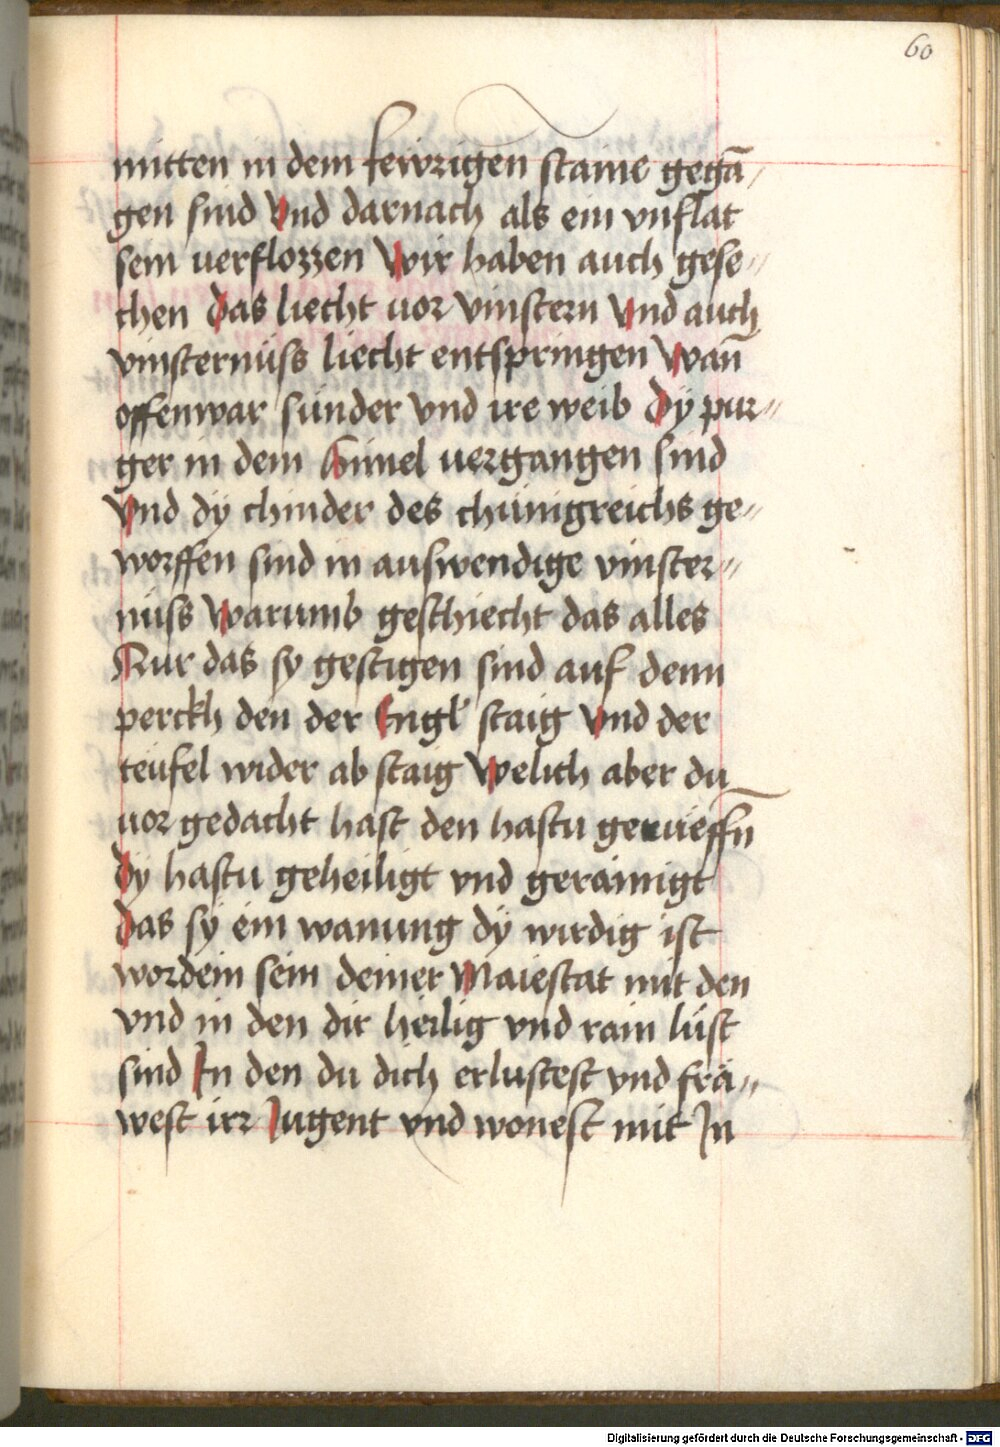 60
mitten in dem fewrigen staine gegā„
gen sind Vnd darnach als ein vnflat
sein uerflozzen Wir haben auch gese„
chen das liecht uor vinstern Vnd auch
vinsternüss liecht entspringen Wan̄
offenwar sünder vnd ire weib dÿ pur„
ger in dem himel uergangen sind
Vnd dÿ chinder des chünigreichs ge„
worffen sind in auswendige vinster„
nüss Warumb geschiecht das alles
Nur das sy gestigen sind auf denn
perckh den der Engl staig Vnd der
teüfel wider ab staig Welich aber du
uor gedacht hast den hastu gerüeffn̄
dÿ hastu geheiligt vnd gerainigt
das sÿ ein wanung dÿ wirdig ist
wordein sein deiner Maiestat mit den
vnd in den dir heilig vnd rain lüst
sind In den du dich erlustest vnd frä„
west irr Iugent vnd wonest mit In
Digitalisierung gefördert durch die Deutsche Forschungsgemeinschaft - DFG